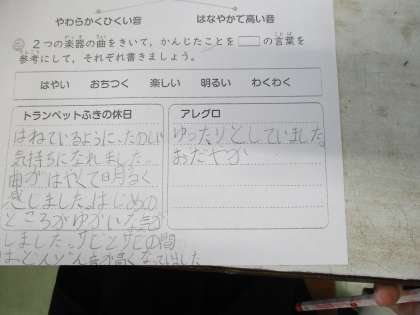 やわらかくひくい音
はなやかで高い音
2つの楽器の曲をきいて、かんじたことを の言葉を
参考にして、それぞれ書きましょう。
はやい おちつく 楽しい 明るい わくわく
トランペットふきの休日
はねているように、たのしい
気持ちになれました。
曲がはやくて明るく
感じました。はじめの
ところがゆかいな気が
しました。サビとサビの間
はどんどん音が高くなってました
アレグロ
ゆったりとしていました。
おだやか